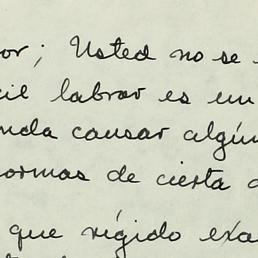 or; Usted no se
cil labrar es un
nda causar algún
ormas de cierta
que rígido exa